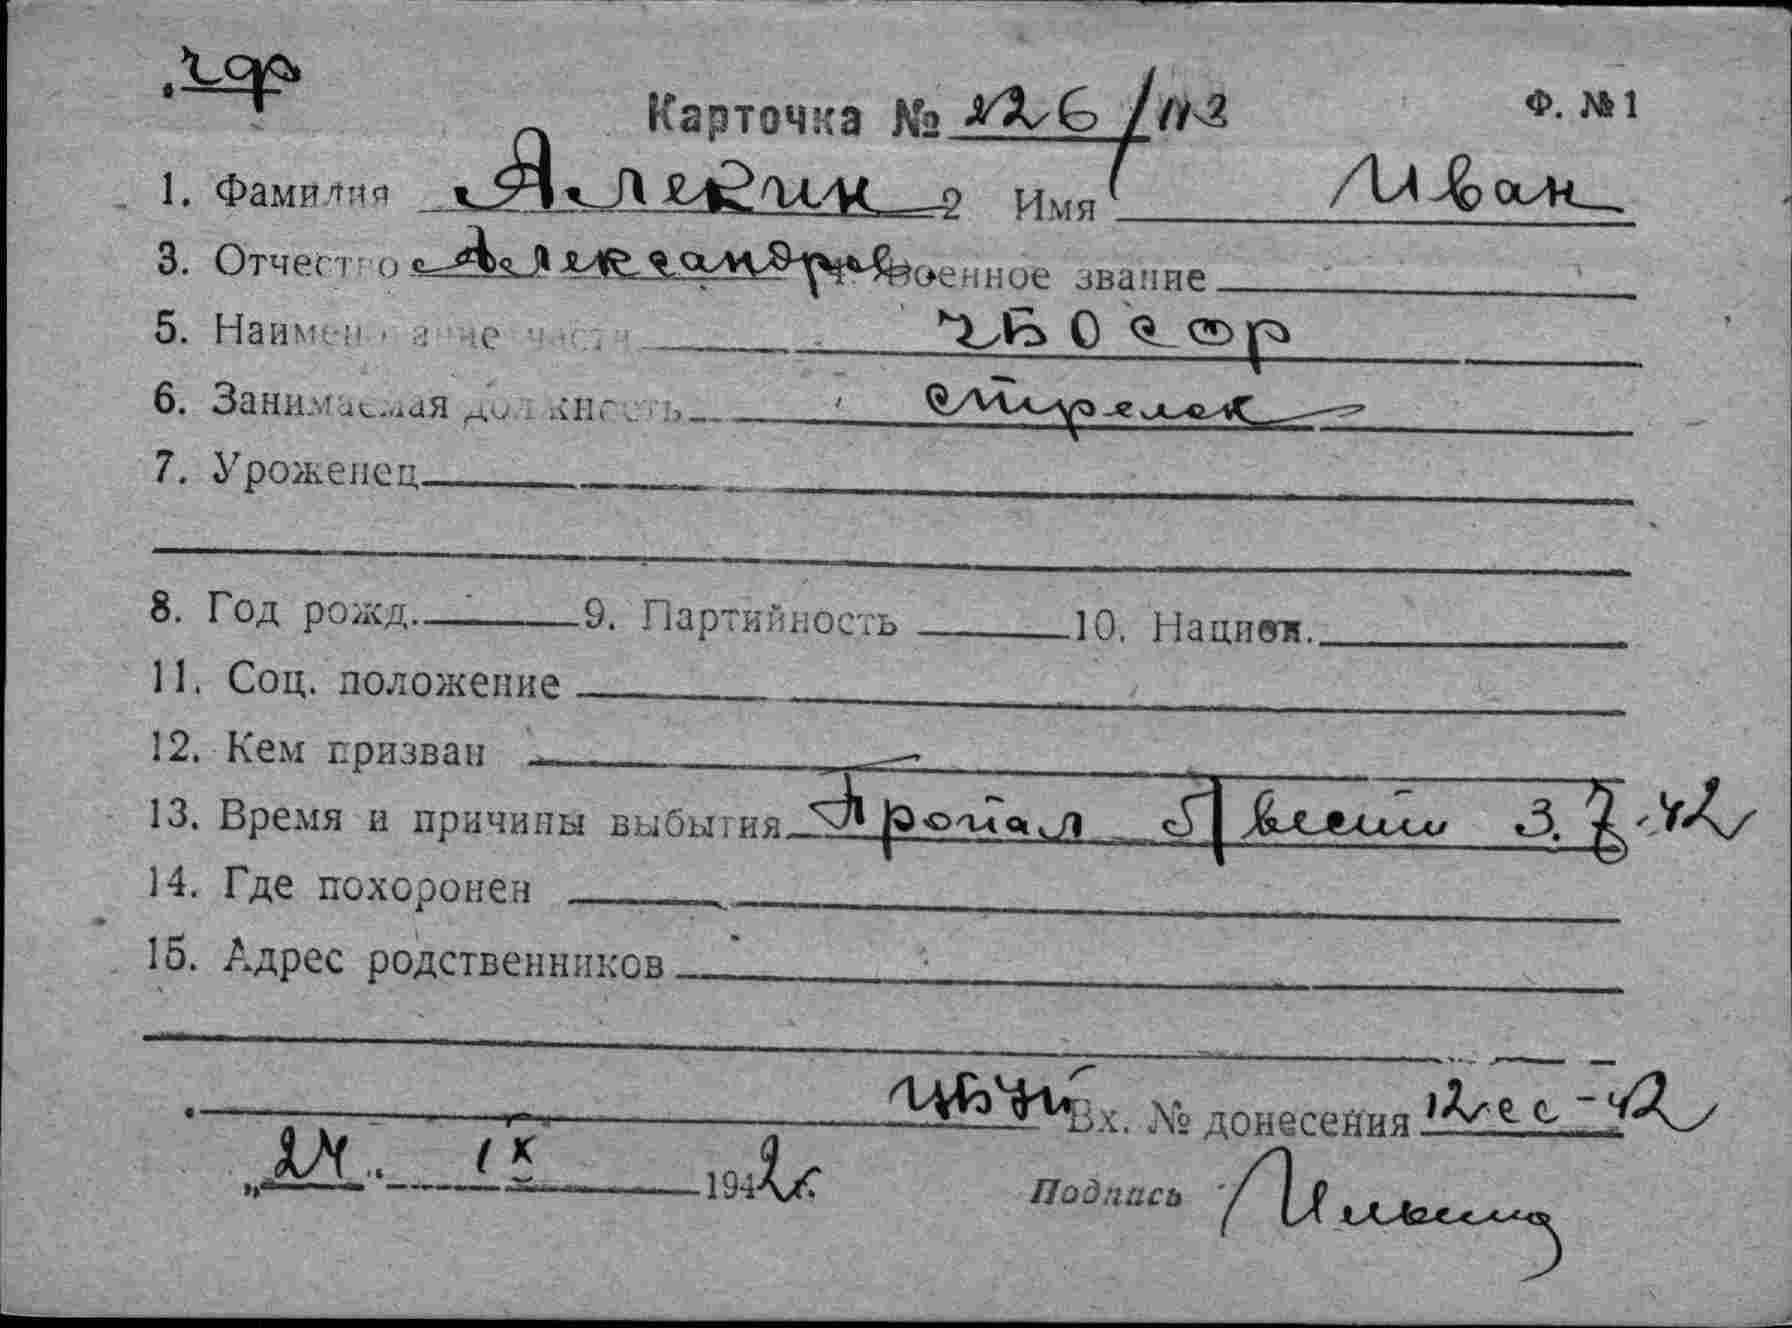 гф
Карточка № 226/из Ф. №1
1. Фамилия Алехин 2 Имя Иван
3. Отчество Александрович Военное звание
5. Наименование части 75 О с ср
6. Занимаемая должность стрелок
7. Уроженец
8. Год рожд. 9. Партийность 10. Национ.
11. Соц. положение
12. Кем призван
13. Время и причины выбытия Пропал б/вести 3.8.42
14. Где похоронен
15. Адрес родственников
Вх. № донесения 12 с-42
„24" IX 1942 г. Подпись